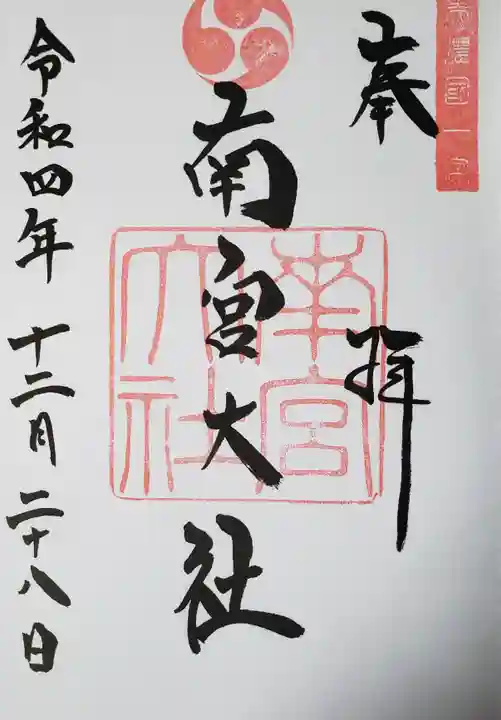 美濃國一宮
奉拝
南宮大社
南宮大社
令和四年十二月二十八日